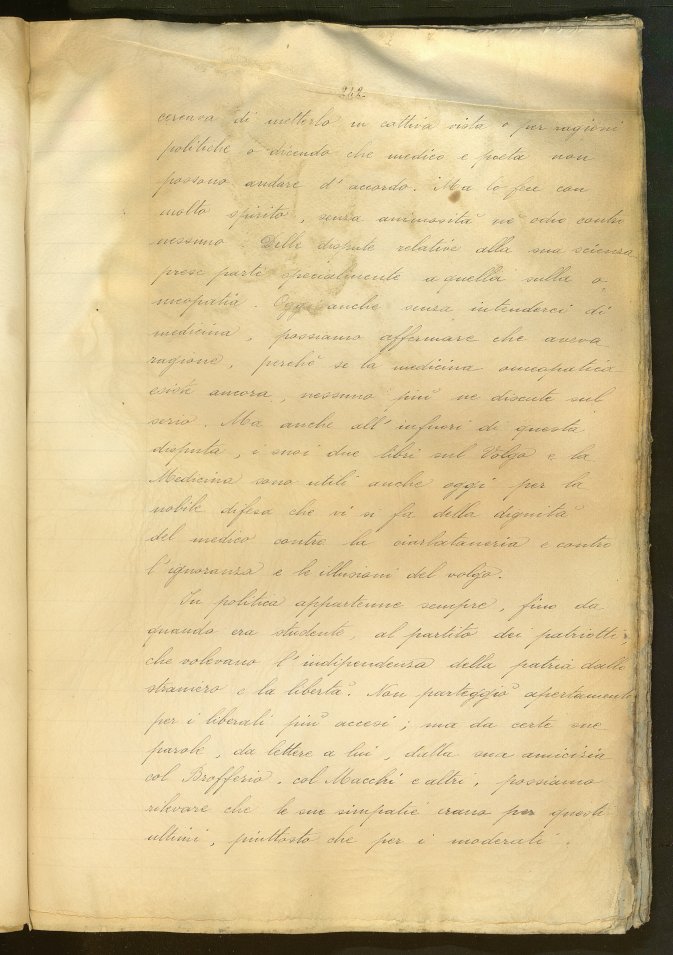 212.
cereva di metterlo in cattiva vista o per ragioni
politiche o dicendo che medico e poeta non
possono andare d'accordo. Ma lo fece con
molto spirito, senza animosità nè odio contro
nessuno. Delle dispute relative alla sua scienza
prese parte specialmente a quella sulla o-
meopatia. Oggi anche senza intenderci di
medicina, possiamo affermare che aveva
ragione, perchè se la medicina omeopatica
esiste ancora, nessuno più ne discute sul
serio. Ma anche all'infuori di questa
disputa, i suoi due libri sul Volgo e la
Medicina sono utili anche oggi per la
nobile difesa che vi si fa della dignità
del medico contro la ciarlataneria e contro
l'ignoranza e le illusioni del volgo.
In politica appartenne sempre, fino da
quando era studente, al partito dei patriotti,
che volevano l'indipendenza della patria dallo
straniero e la libertà. Non parteggiò apertamente
per i liberali più accesi; ma da certe sue
parole, da lettere a lui, dalla sua amicizia
col Brofferio, col Macchi e altri, possiamo
rilevare che le sue simpatie erano per questi
ultimi, piuttosto che per i moderati.